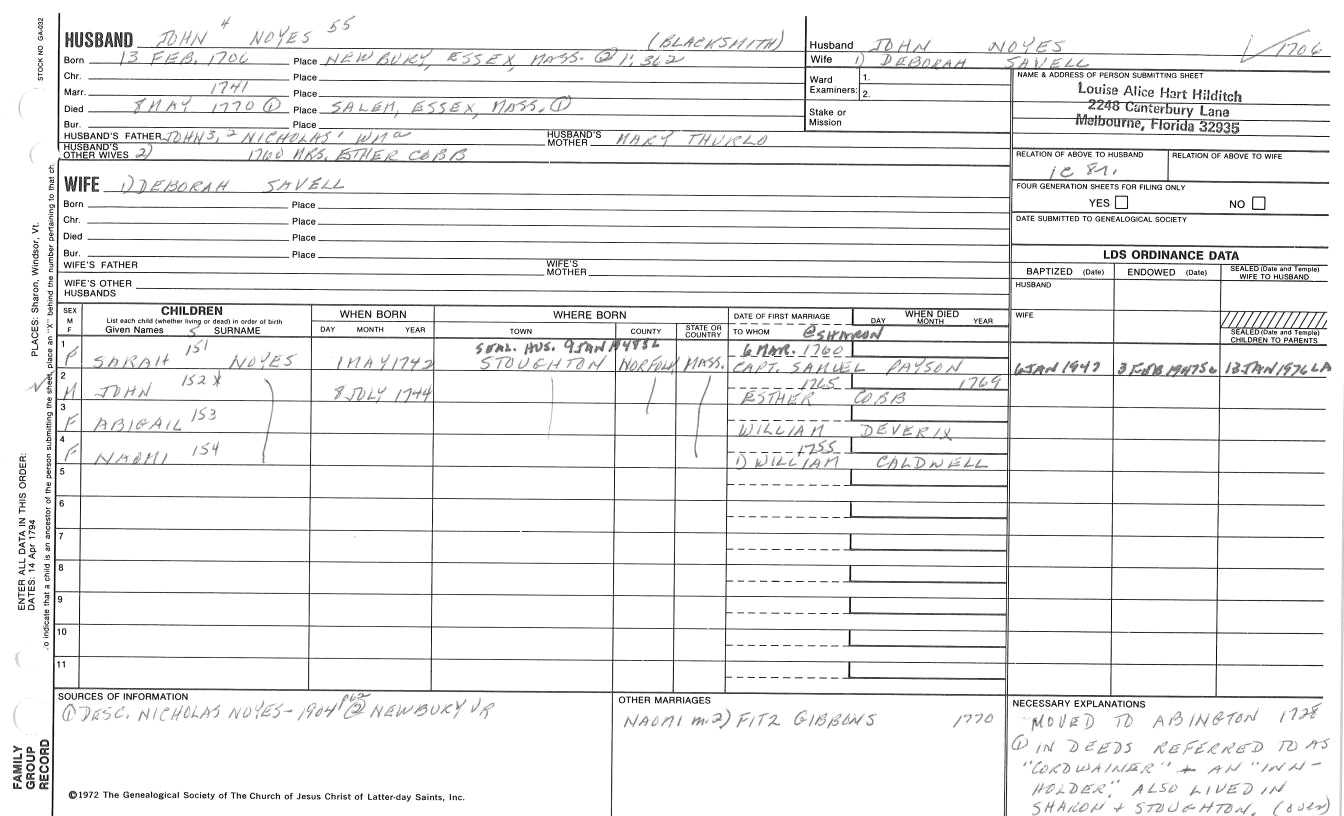 STOCK NO. GA-032
HUSBAND JOHN 4 NOYES 55 (BLACKSMITH)
Born 13 FEB. 1706 Place NEWBURY, ESSEX, MASS. ② 1:362
Chr. Place
Marr. 1741 Place
Died 8 MAY 1770 ① Place SALEM, ESSEX, MASS. ①
Bur. Place
HUSBAND'S FATHER JOHN 3, 2 NICHOLAS 1 WM a HUSBAND'S MOTHER MARY THURLO
HUSBAND'S OTHER WIVES 2) 1760 MRS. ESTHER COBB
Husband JOHN NOYES 1706
Wife 1) DEBORAH SAVELL
Ward Examiners: 1.
2.
Stake or Mission
NAME & ADDRESS OF PERSON SUBMITTING SHEET
Louise Alice Hart Hilditch
2248 Canterbury Lane
Melbourne, Florida 32935
RELATION OF ABOVE TO HUSBAND RELATION OF ABOVE TO WIFE
1C 8r.
FOUR GENERATION SHEETS FOR FILING ONLY
YES NO
DATE SUBMITTED TO GENEALOGICAL SOCIETY
WIFE 1) DEBORAH SAVELL
Born Place
Chr. Place
Died Place
Bur. Place
WIFE'S FATHER WIFE'S MOTHER
WIFE'S OTHER HUSBANDS
LDS ORDINANCE DATA
BAPTIZED (Date) ENDOWED (Date) SEALED (Date and Temple) WIFE TO HUSBAND
HUSBAND
WIFE
SEALED (Date and Temple) CHILDREN TO PARENTS
SEX M F
CHILDREN
List each child (whether living or dead) in order of birth
Given Names 5 SURNAME
WHEN BORN
DAY MONTH YEAR
WHERE BORN
TOWN COUNTY STATE OR COUNTRY
DATE OF FIRST MARRIAGE
TO WHOM
WHEN DIED
DAY MONTH YEAR
@ SHARON
SEAL. HUS. 9 JAN 1948 SL 6 MAR. 1760
1 F SARAH 151 NOYES 1 MAY 1742 STOUGHTON NORFOLK MASS. CAPT. SAMUEL PAYSON 6 JAN 1947 13 JAN 1976 LA
1765 1769
2 M JOHN 152 X 8 JULY 1744 ESTHER COBB
3 F ABIGAIL 153 WILLIAM DEVERIX
1755
4 F NAOMI 154 1) WILLIAM CALDWELL
5
6
7
8
9
10
11
SOURCES OF INFORMATION
① DESC. NICHOLAS NOYES-1904 P62 ② NEWBURY VR
OTHER MARRIAGES
NAOMI m. 2) FITZ GIBBONS 1770
NECESSARY EXPLANATIONS
MOVED TO ABINGTON
① IN DEEDS REFERRED TO AS
"CORDWAINER" + AN "INN-
HOLDER." ALSO LIVED IN
SHARON + STOUGHTON. (over)
©1972 The Genealogical Society of The Church of Jesus Christ of Latter-day Saints, Inc.
FAMILY GROUP RECORD
ENTER ALL DATA IN THIS ORDER:
DATES: 14 Apr 1794
PLACES: Sharon, Windsor, Vt.
o indicate that a child is an ancestor of the person submitting the sheet, place an "X" behind the number pertaining to that ch